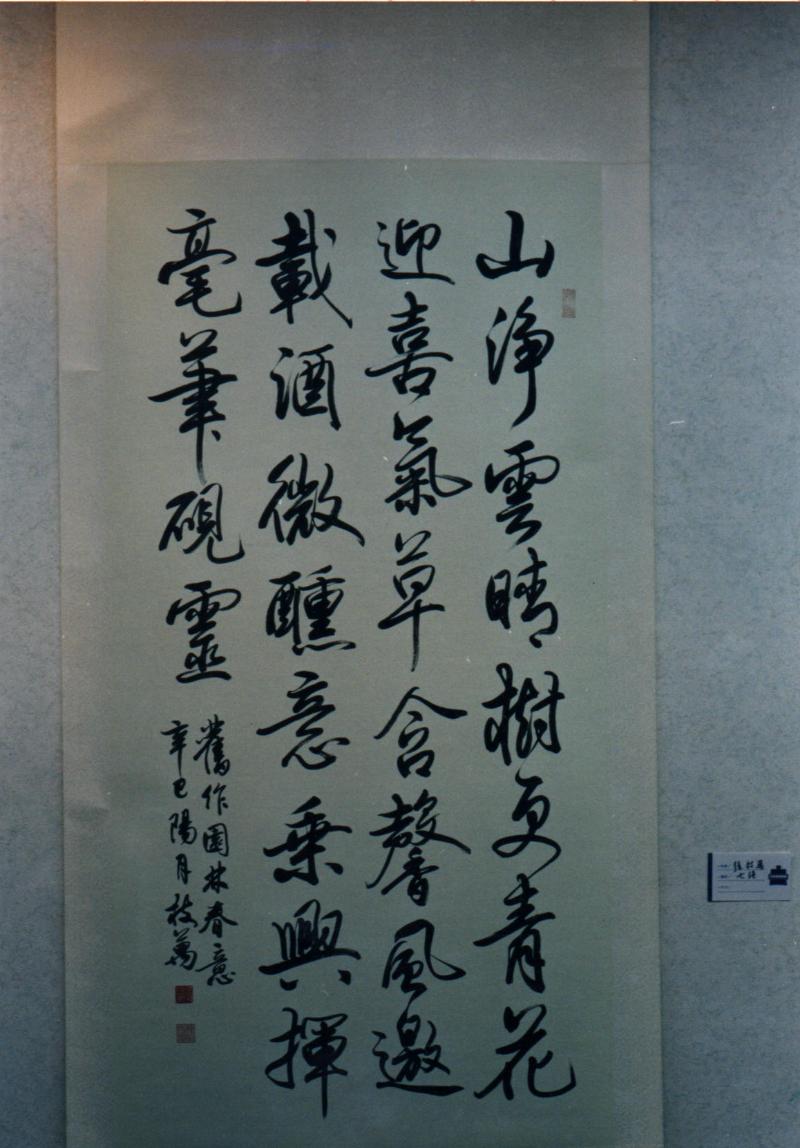 山淨雲晴樹更青花
迎喜氣草含馨風邀
載酒微醺意乘興揮
毫筆硯靈
舊作園林春意
辛巳陽月枝萬
七絕